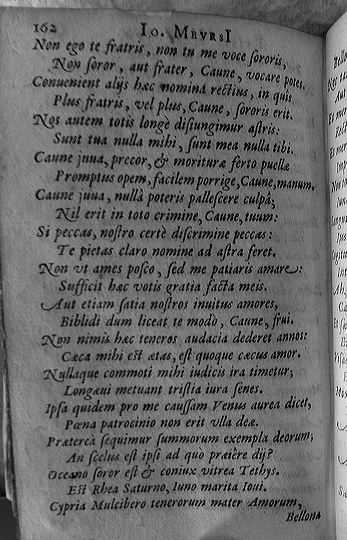 162 IO. MEVRSI
Non ego te fratris, non tu me voce sororis,
Non soror, aut frater, Caune, vocare potes.
Conuenient alijs hæc nomina rectius, in quis
Plus fratris, vel plus, Caune, sororis erit.
Nos autem totis longè disiungimur astris:
Sunt tua nulla mihi, sunt mea nulla tibi.
Caune juua, precor, & morituræ ferto puellæ
Promptus opem, facilem porrige, Caune, manum.
Caune juua, nullâ poteris pallescere culpâ;
Nil erit in toto crimine, Caune, tuum:
Si peccas, nostro certè discrimine peccas:
Te pietas claro nomine ad astra feret.
Non vt ames posco, sed me patiaris amare:
Sufficit hæc votis gratia facta meis.
Aut etiam satia nostros inuitus amores,
Biblidi dum liceat te modò, Caune, frui.
Non nimis hæc teneros audacia dederet annos:
Cæca mihi est ætas, est quoque cæcus amor.
Nullaque commoti mihi iudicis ira timetur;
Longæui metuant tristia iura senes.
Ipsa quidem pro me caussam Venus aurea dicet,
Pœna patrocinio non erit vlla deæ.
Præterea sequimur summorum exempla deorum;
An scelus est ipsi ad quò præiêre dij?
Oceano soror est & coniux vitrea Tethys.
Est Rhea Saturno, Iuno marita Ioui.
Cypria Mulcibero tenerorum mater Amorum,
Bellona